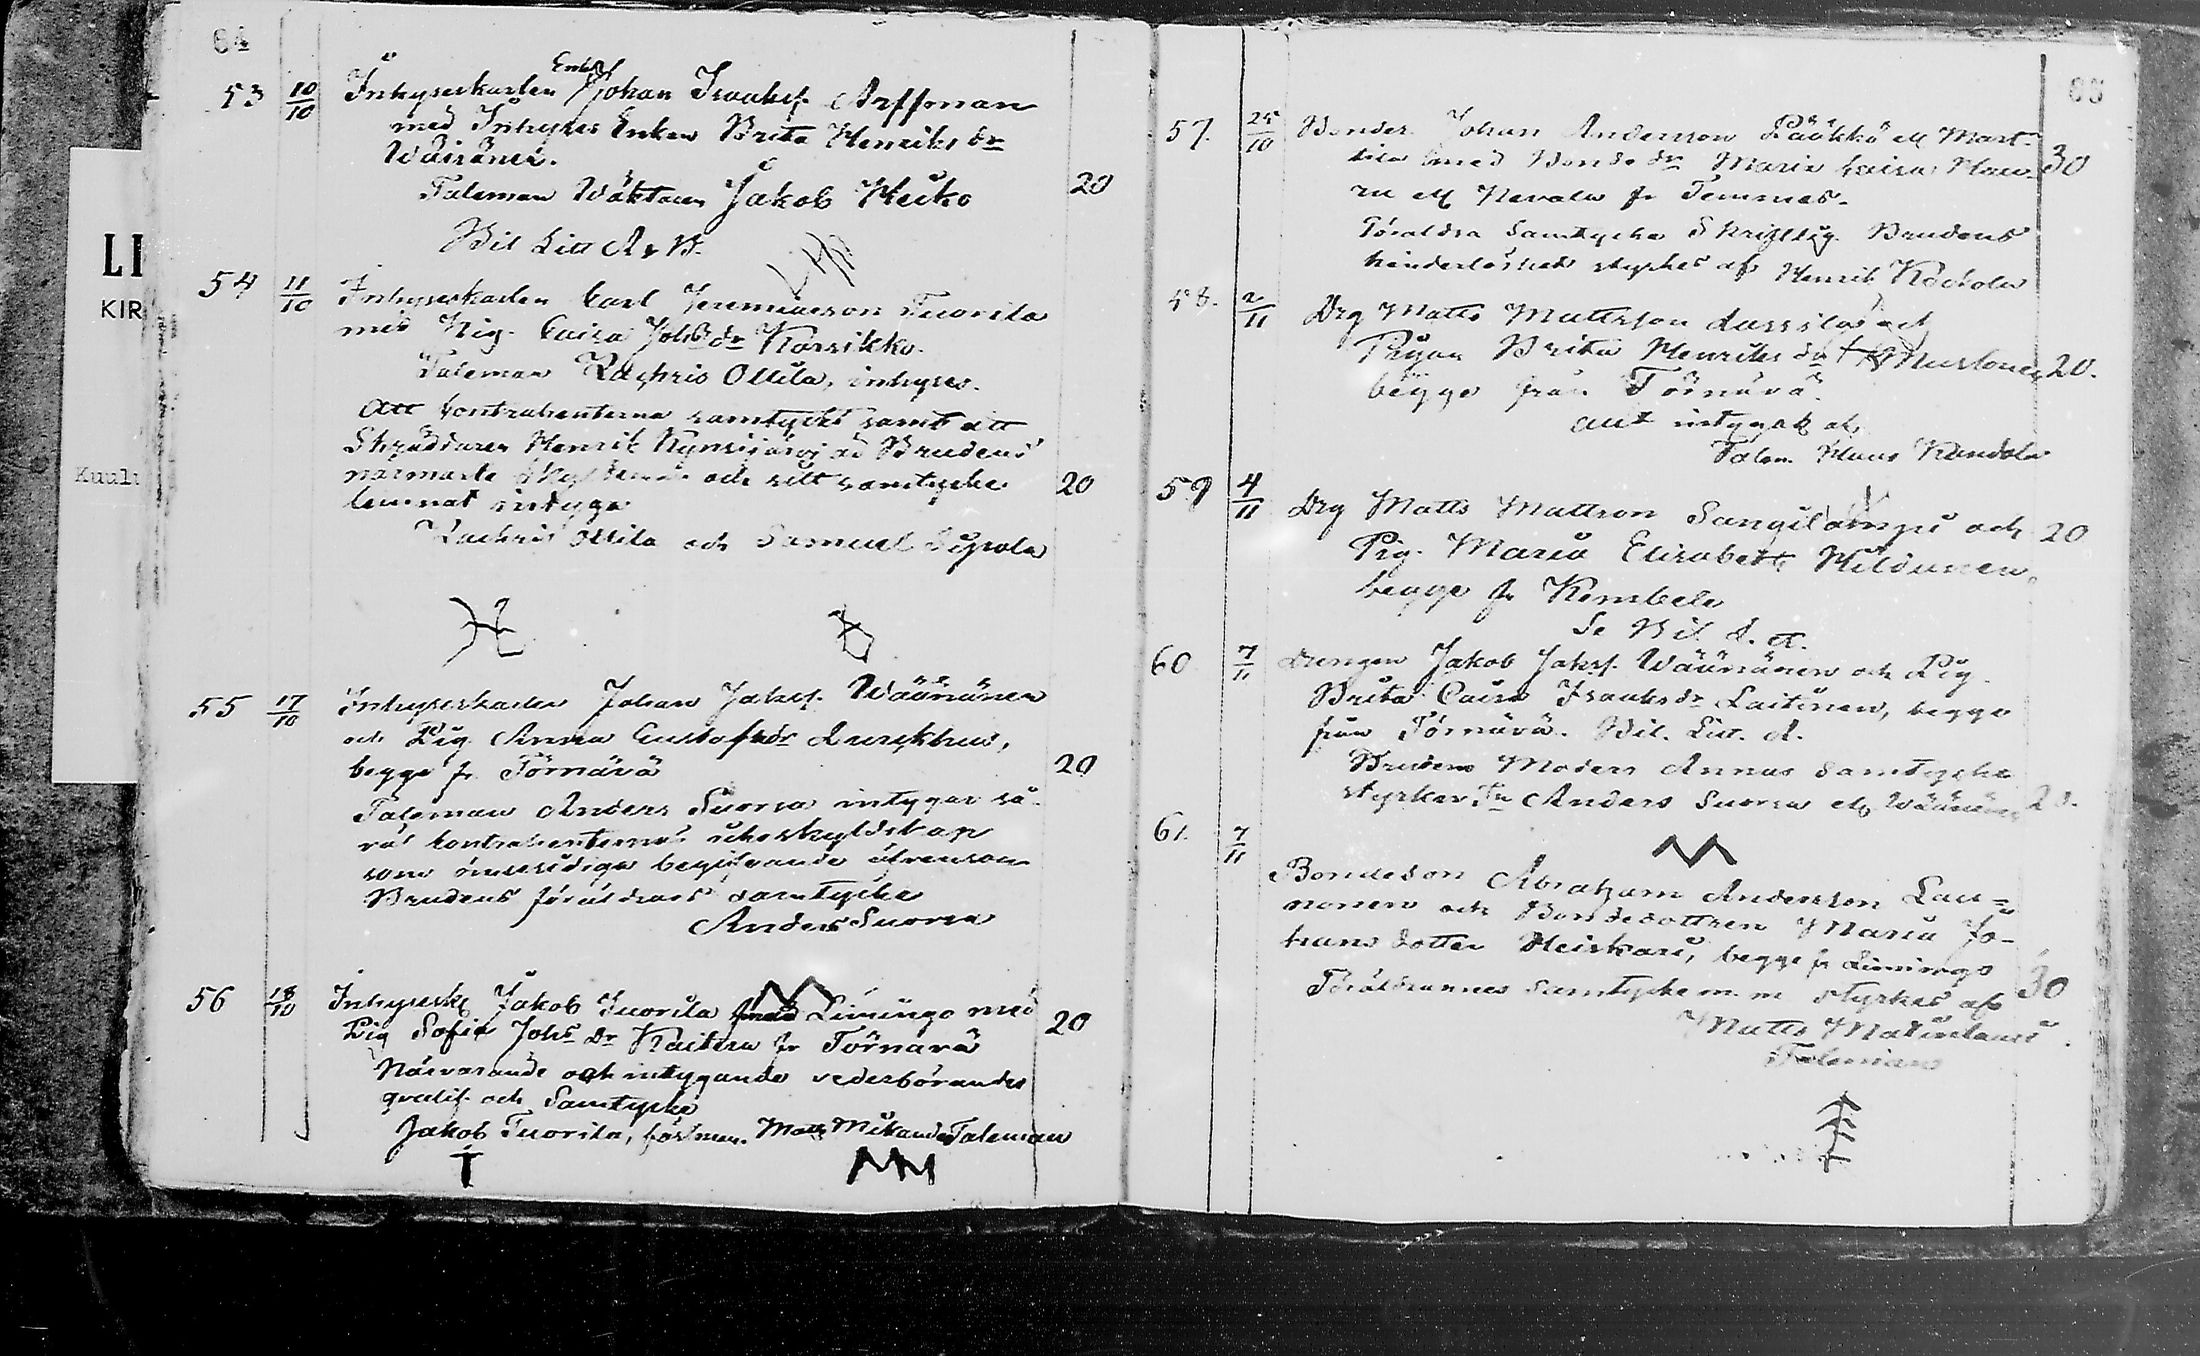 64
Enkl.
53 10/10 Inhyseskarlen Johan Isaaksf. Arffman
med Inhyses Enkan Brita Henriks dr
Wäisänen.
Taleman Wäktaren Jakob Heiko 20
Bil Litt A & B.
54 11/10 Inhyseskarlen Carl Jeremiaeson Tuorila
med Pig. Caisa Johs dr Karsikko.
Taleman Zachris Ollila, inhyses.
att kontrahenterna samtyckt samt att
Skräddaren Henrik Kynsijärvi as Brudens
närmaste och sitt samtycke 20
lemnat intyga
Zachris Ollila och Samuel Sipola
55 17/10 Inhyseskarlen Johan Jakosf. Wäänänen
och Pig. Anna Gustafsdr
begge fr. Törnävä 20
Taleman Anders Suorsa intygar så-
väl kontrahenternas oskyldskap
som ömsesidiga begifvande äfvensom
Brudens föräldrars samtycke
Anders Suorsa
56 18/10 Inhysesk. Jakob Tuorila Limingo med
Pig Sofia Johs dr Kaitera fr Törnävä 20
Närvarande och intygande vederbörandes
qvalif. och Samtycke
Jakob Tuorila, Matts Taleman
LI
KIR
Kuulu
66
57. 25/10 Bonden Johan Andersson Pääkkö ell Mart-
tila med Bonde dr Maria Caisa 30
ell Nevala fr Temmes.
Föräldra Samtycke Skriftlig. Brudens
hinderlöshet styrkes af Henrik
58. 2/11 Drg Matts Mattsson Lassila och
Pigan Brita Henriks dr Mustonen 20.
begge från Törnävä.
allt intygat af
Talem. Hans Kandola
59 4/11 Drg Matts Mattson Sangilampi och 20
Pig. Maria Elisabeth Hildunen,
begge fr Kembele
Se Bil. L. A.
60 7/11 Drengen Jakob Jaksf. Wäänänen och Pig.
Brita Caisa Isaaks dr Laitinen, begge
från Törnävä. Bil. Litt. A.
Brudens Moders Annas Samtycke
styrker Tn Anders Suorsa ell Wäänänen 20.
61. 7/11
Bondeson Abraham Andersson Lau-
nonen och Bondedottren Maria Jo-
hans dotter Heiskari, begge fr Limingo
Föräldrarnes Samtycke m. m styrkes af 30
Matts
Taleman